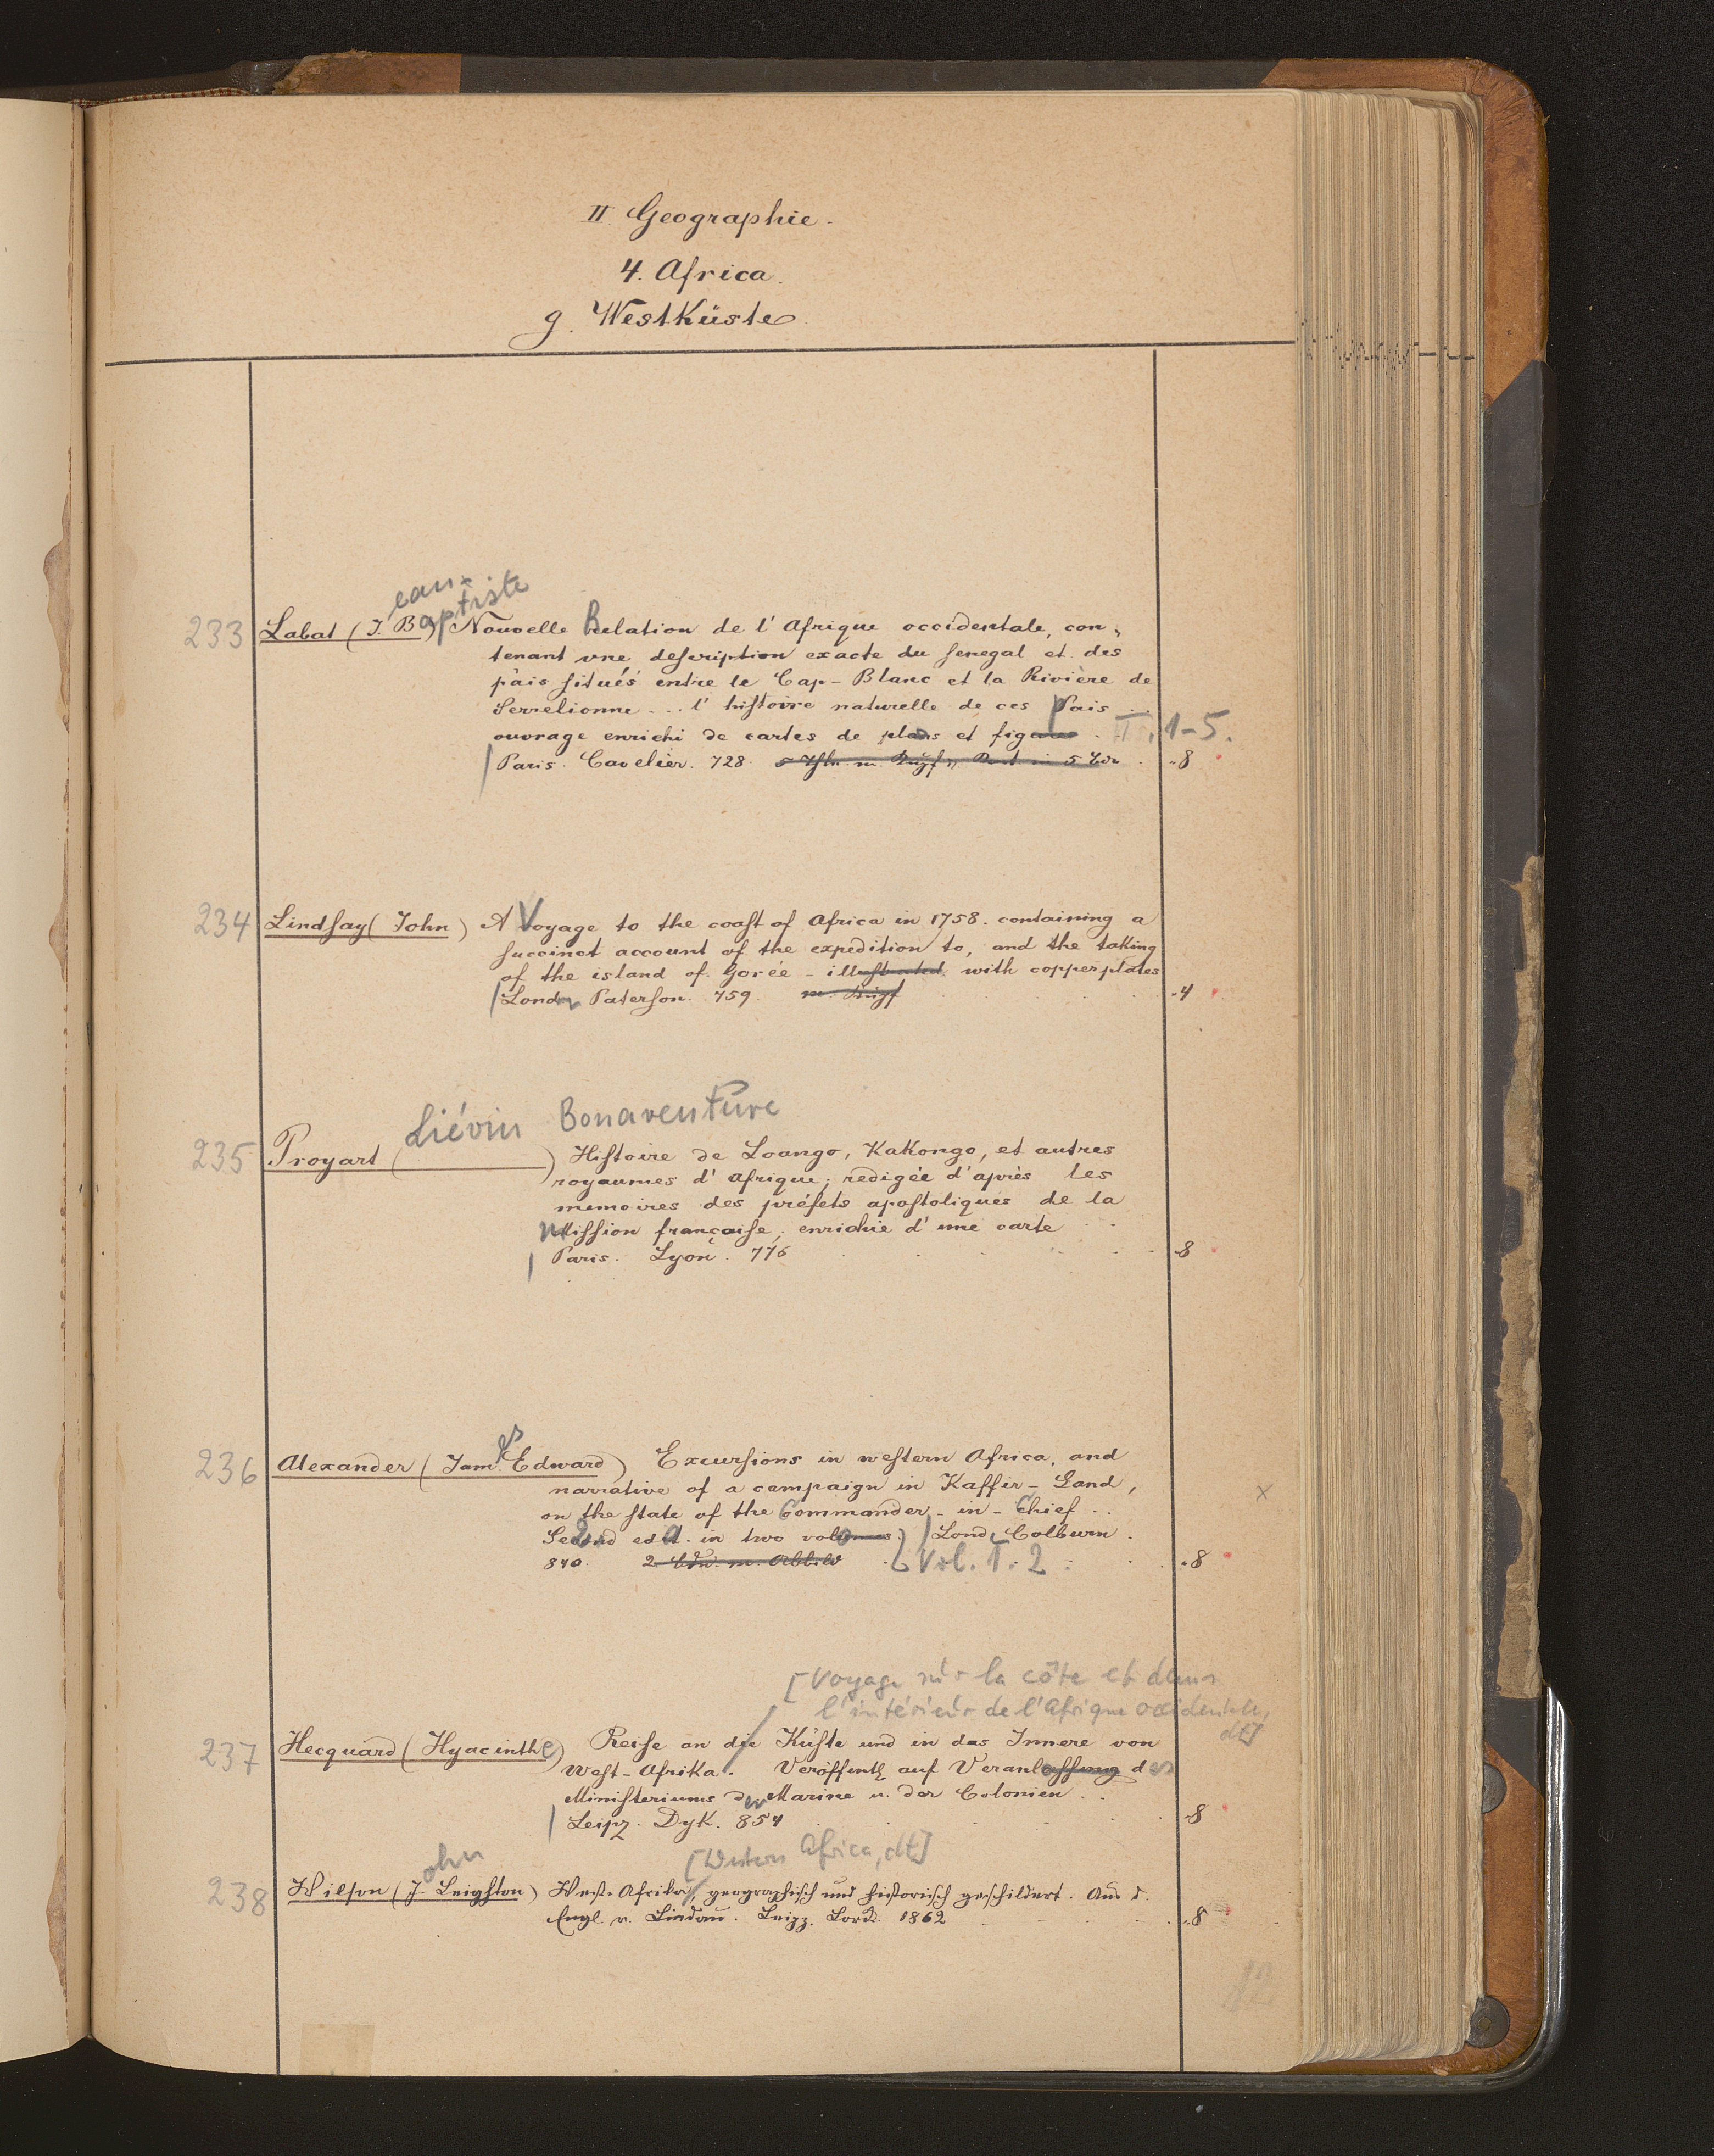 II Geographie.
4. Africa.
g. Westküste
ean-
aptiste
233 Labat (J. B.) Nouvelle Relation de l' Afrique occidentale, con-
tenant une description exacte du Senegal et des
païs situés entre le Cap-Blanc et la Rivière de
Serrelionne ... l' histoire naturelle de ces Pais ..
ouvrage enrichi de cartes de plans et figures . T. 1-5.
Paris. Cavelier. 728. -8
234 Lindsay (John) A Voyage to the coast of Africa in 1758. containing a
succinct account of the expedition to, and the taking
of the island of Gorée - illustrated with copperplates
Lond. Paterson. 759. m. Kupf -4
Liévin Bonaventure
235 Proyart ( ) Histoire de Loango, Kakongo, et autres
royaumes d' Afrique; redigée d'après les
memoires des préfets apostoliques de la
Mission françoise; enrichie d' une carte
Paris. Lyon. 776 -8
es
236 Alexander (Jam. Edward) Excursions in western Africa, and
narrative of a campaign in Kaffir-Land,
on the state of the Commander-in-Chief ..
Second ed. in two volumes) Lond, Colburn.
840. 2 Bde. m. Abbild Vol. 1. 2 -8
x
[Voyage sur la côte et dans
l'intérieur de l'Afrique occidentale,
dt]
237 Hecquard (Hyacinthe) Reise an die Küste und in das Innere von
West-Afrika. Veröffentl auf Veranlassung des
Ministeriums der Marine u. der Colonien ..
Leipz. Dyk. 854 -8
ohn
[Western Africa, dt]
238 Wilson (J. Leighton) West-Afrika, geographisch und historisch geschildert. Aus d.
Engl. v. Lindau. Leipz. Lorck. 1862 -8